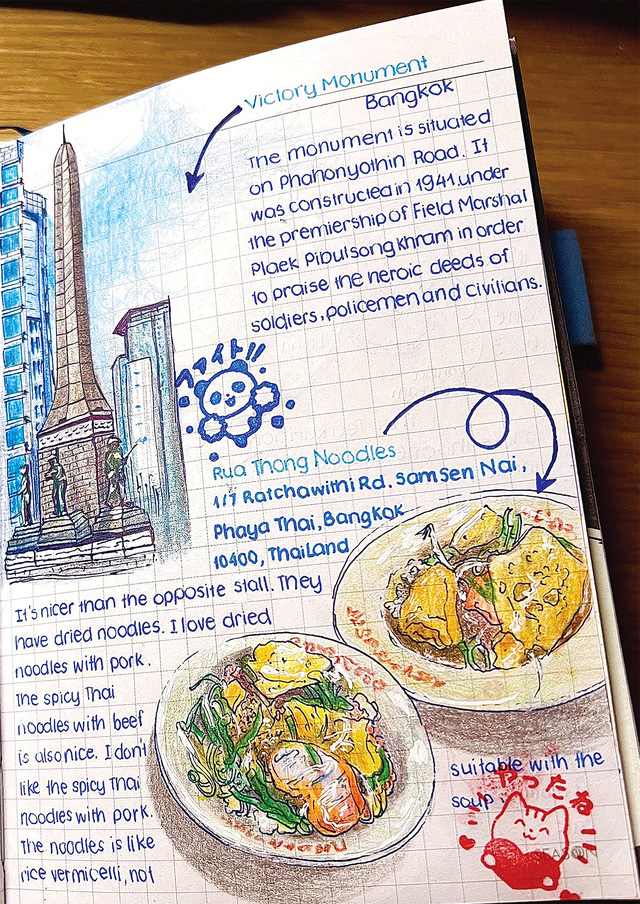 Victory Monument
Bangkok
The monument is situated
on Phahonyothin Road. It
was constructed in 1941 under
the premiership of Field Marshal
Plaek Pibulsongkhram in order
to praise the heroic deeds of
soldiers, policemen and civilians.
ファイト!!
Rua Thong Noodles
1/7 Ratchawithi Rd. Samsen Nai,
Phaya Thai, Bangkok
10400, Thailand
It's nicer than the opposite stall. They
have dried noodles. I love dried
noodles with pork.
The spicy Thai
noodles with beef
is also nice. I don't
like the spicy Thai
noodles with pork.
The noodles is like
rice vermicelli, not
suitable with the
soup.
やったねー